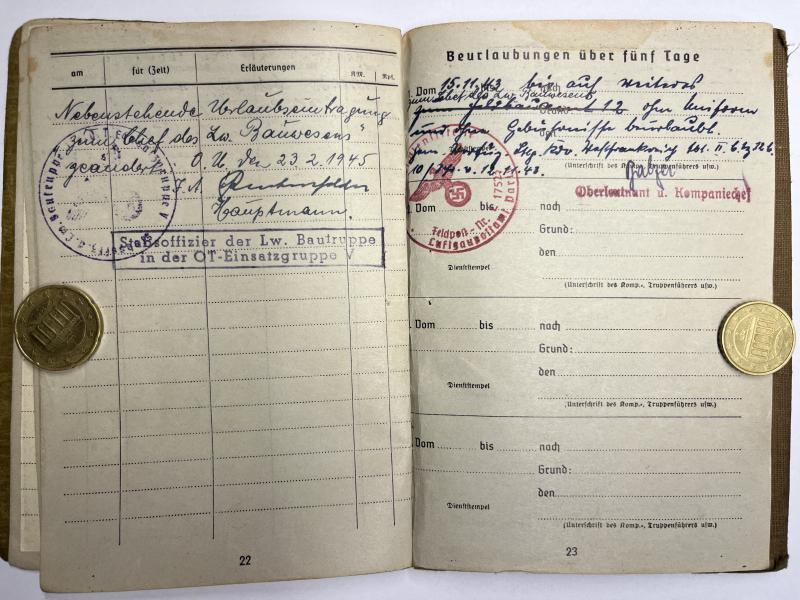 am für (Zeit) Erläuterungen RM. Rpf.
Nebenstehende Urlaubseintragung
"zum Chef des Lw. Bauwesens"
geändert. O.U. den 23.2.1945
Hauptmann.
Stabsoffizier der Lw. Bautruppe
in der OT-Einsatzgruppe V
22
Beurlaubungen über fünf Tage
1. Vom 15.11.43 bis auf weiteres nach
zum Chef des Lw. Bauwesens
12 ohne Uniform
und ohne Gebührnisse beurlaubt.
v. 12.11.43.
(Unterschrift des Komp., Truppenführers usw.)
Oberleutnant u. Kompaniechef
Feldpost-Nr. 17537
Luftgaupostamt
Vom bis nach
Grund:
den
Dienststempel
(Unterschrift des Komp., Truppenführers usw.)
Vom bis nach
Grund:
den
Dienststempel
(Unterschrift des Komp., Truppenführers usw.)
Vom bis nach
Grund:
den
Dienststempel
(Unterschrift des Komp., Truppenführers usw.)
23